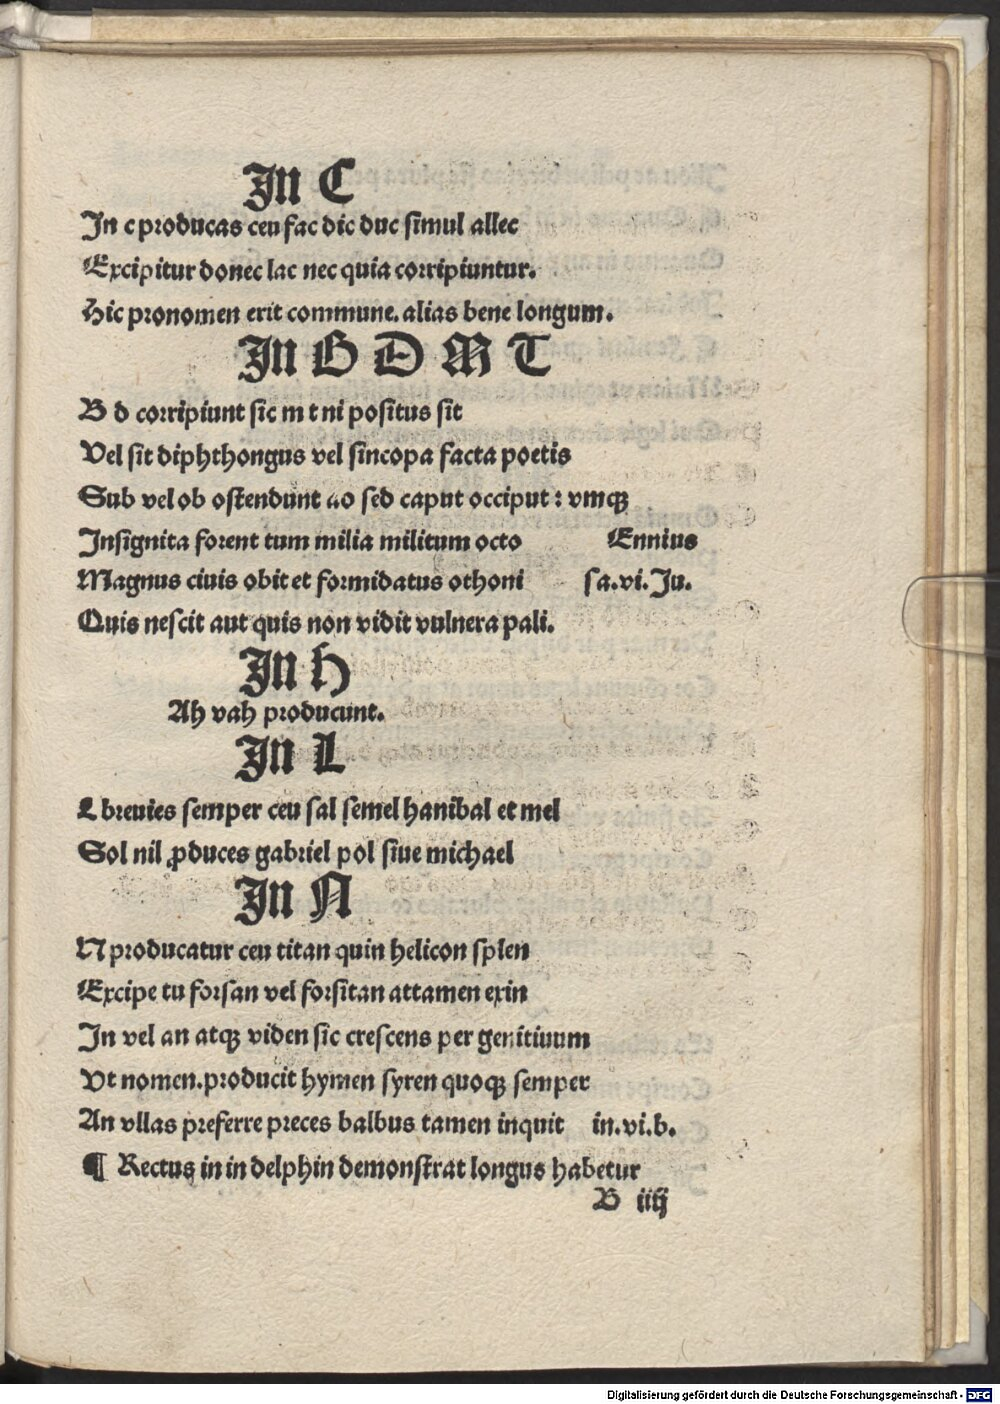 In C
In c producas ceu fac dic duc simul allec
Excipitur donec lac nec quia corripiuntur.
Hic pronomen erit commune. alias bene longum.
In B D M T
B d corripiunt sic m t ni positus sit
Vel sit diphthongus vel sincopa facta poetis
Sub vel ob ostendunt ao sed caput occiput : vmqꝫ
Insignita forent tum milia militum octo Ennius
Magnus ciuis obit et formidatus othoni sa.vi.Ju.
Quis nescit aut quis non vidit vulnera pali.
In H
Ah vah producunt.
In L
L breuies semper ceu sal semel hanibal et mel
Sol nil ꝓduces gabriel pol siue michael
In N
N producatur ceu titan quin helicon splen
Excipe tu forsan vel forsitan attamen exin
In vel an atqꝫ viden sic crescens per genitiuum
Vt nomen.producit hymen syren quoqꝫ semper
An vllas preferre preces balbus tamen inquit in.vi.b.
¶ Rectus in in delphin demonstrat longus habetur
B iiij
Digitalisierung gefördert durch die Deutsche Forschungsgemeinschaft - DFG